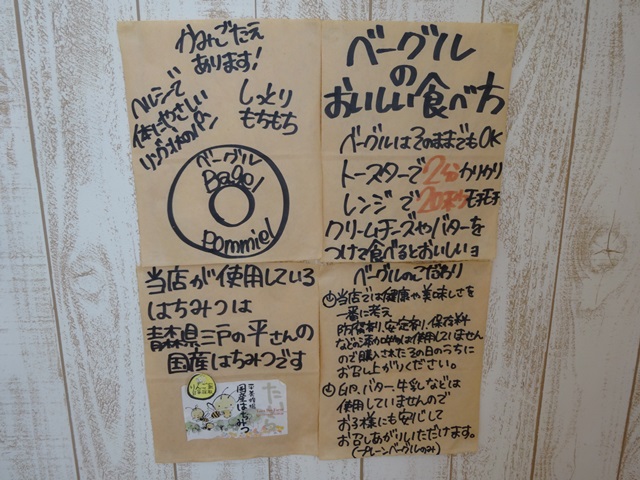 かみごたえ
あります!
ヘルシーで
体にやさしい
リング状のパン
しっとり
もちもち
ベーグル
Bagel
pommiel
ベーグル
の
おいしい食べ方
ベーグルはそのままでもOK
トースターで2分カリカリ
レンジで20秒モチモチ
クリームチーズやバターを
つけて食べるとおいしいョ
当店が使用している
はちみつは
青森県三戸の平さんの
国産はちみつです
国産はちみつ
ベーグルのこだわり
当店では健康や美味しさを
一番に考え
防腐剤、安定剤、保存料
などの添加物は使用していません
ので購入された日のうちに
お召し上がりください。
卵、バター、牛乳などは
使用していませんので
お子様にも安心して
お召しあがりいただけます。
(プレーンベーグルのみ)